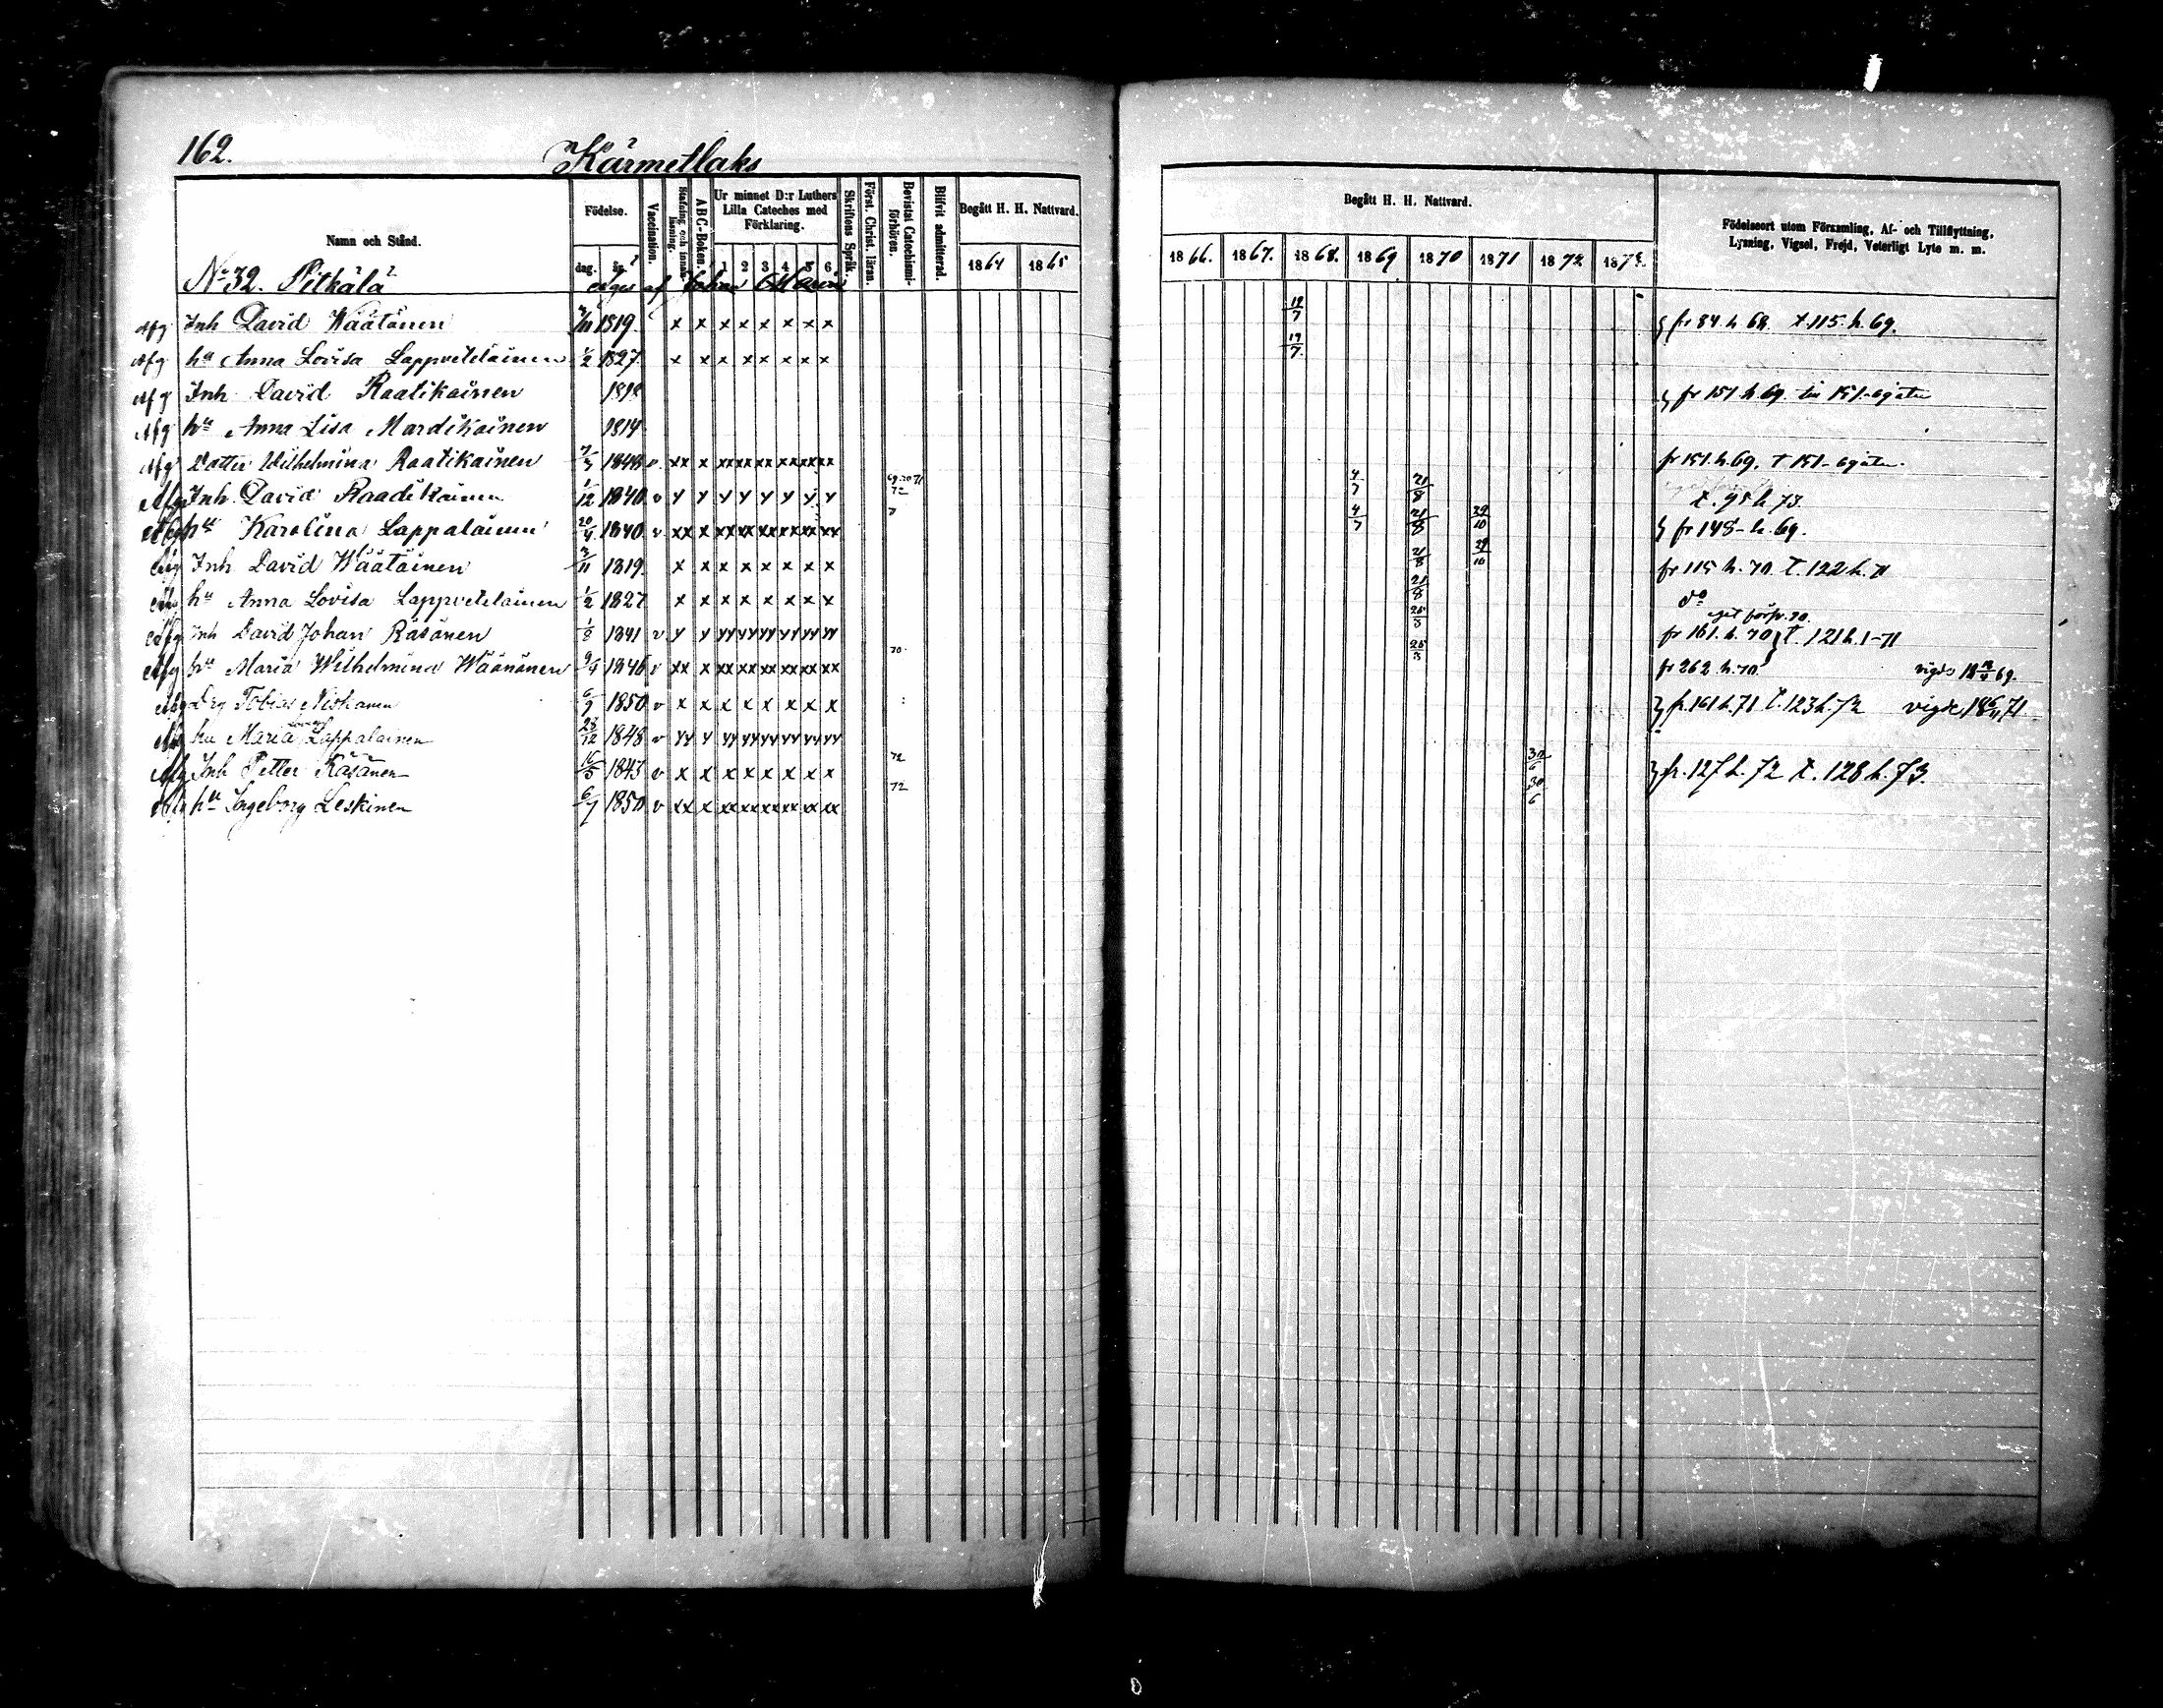 162.
Kärmetlaks
Namn och Stånd.
Födelse.
dag.
år
Vaccination.
Stafning och innanläsning.
ABC-Boken.
Ur minnet D:r Luthers Lilla Cateches med Förklaring.
1 2 3 4 5 6
Skriftens Språk.
Först. Christ. läran.
Bevistat Catechismiförhören.
Blifvit admitterad.
Begått H. H. Nattvard.
1864 1865
Begått H. H. Nattvard.
1866. 1867. 1868. 1869 1870 1871 1872 1873.
Födelseort utom Församling, Af- och Tillflyttning,
Lysning, Vigsel, Frejd, Veterligt Lyte m. m.
No 32. Pitkälä eges af Johan
Afg Inh David Wäätänen 2/11 1819. x x x x x x x x 19/7 fr 84. h. 68. t. 115. h. 69.
Afg hu Anna Lovisa Lappveteläinen 1/2 1827. x x x x x x x x 19/7.
Afg Inh David Raatikainen 1818 fr 151 h. 69.
Afg hu Anna Lisa Mardikainen 1814
Afg Dotter Wilhelmina Raatikainen 1848 v. xx x xx xx xx xx xx xx fr 151. h. 69.
Afg Inh. David Raadikainen 1/12 1840 v y y y y y y y y 69 70 71 72 4/7 21/8 t. 95 h 73.
Afg hu Karolina Lappalainen 20/4 1840 v xx x xx xx xx xx xx xx 4/7 21/8 29/10 fr 148 - h. 69.
Afg Inh David Wäätäinen 2/11 1819. x x x x x x x x 21/8 29/10 fr 115 h. 70. t. 122 h. 71
Afg hu Anna Lovisa Lappveteläinen 1/2 1827 x x x x x x x x 21/8 do
Afg Inh David Johan Räsänen 1/8 1841 v y y yy yy yy yy yy yy fr 161. h. 70 t. 121 h. 1-71
Afg hu Maria Wilhelmina Wäänänen 9/4 1846 v xx x xx xx xx xx xx xx 70 fr 262 h. 70.
Afg Drg Tobias Niskanen 6/7 1850 v x x x x x x x x fr. 161 h. 71 t. 123 h. 72 vigde 18 6/11 71
Afg hu Maria Lappalainen 28/12 1848 v yy y yy yy yy yy yy yy
Afg Inh Petter Räsänen 16/5 1843 v x x x x x x x x 72 30/6 fr. 127 h. 72 t. 128 h. 73.
Afg hu Ingeborg Leskinen 6/7 1850 v xx x xx xx xx xx xx xx 72 30/6